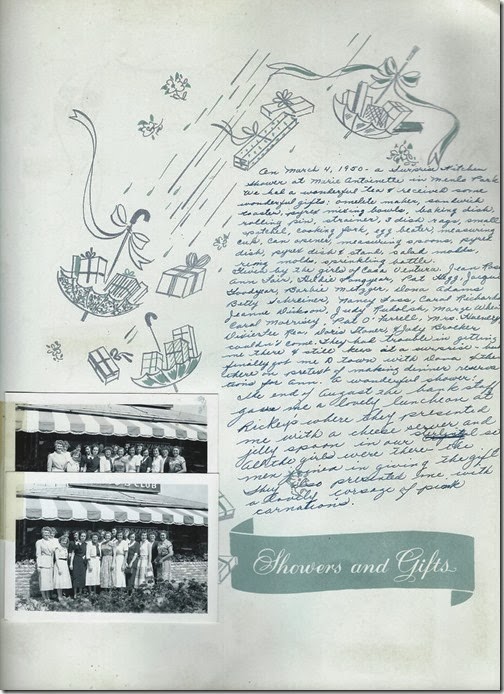 On March 4, 1950 - a surprise kitchen
shower at Marie Antoinette in Menlo Park.
We had a wonderful tea & received some
wonderful gifts: omelite maker, sandwich
toaster, pyrex mixing bowls, baking dish,
rolling pin, strainer, 3 dish rags, small
spatchel, cooking fork, egg beater, measuring
cup, can opener, measuring spoons, pyrex
dish, pyrex dish & stand, salad molds,
ring molds, sprinkling bottle.
Given by the girls of Casa Ventura, Jean
Ann Fair, Pat
Goodyear, Barbie Metzger, Dona Adams
Betty Schreiner, Nancy Fass, Carol Richards
Jeanne Dickson, Judy Rudolph, Marge
Carol Morrissey, Pat O'Farrell. Mrs.
Rea, Doris & Judy
couldn't come. They had trouble in getting
me there & still keep it a surprise - but
finally got me down town with Dona & the
others on pretext of making dinner reserva
tions for Ann. A wonderful shower.
the end of August the bank staff
gave me a lovely luncheon at
Rickeys where they presented
me with a cheese server and
jelly spoon in our
All the girls were there - the
men joined in giving the gift
They also presented me with
a lovely corsage of pink
carnations.
CLUB
Showers and Gifts